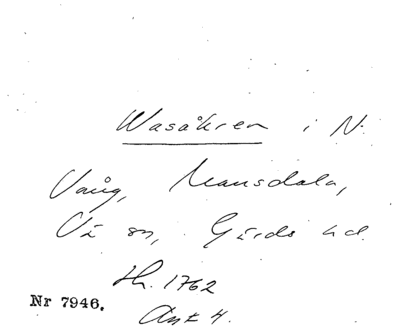 Wasåkren i N.
Vång, Mansdala,
Vä sn, Gärds hd.
Hh. 1762
Nr 7946.
Akt 4.